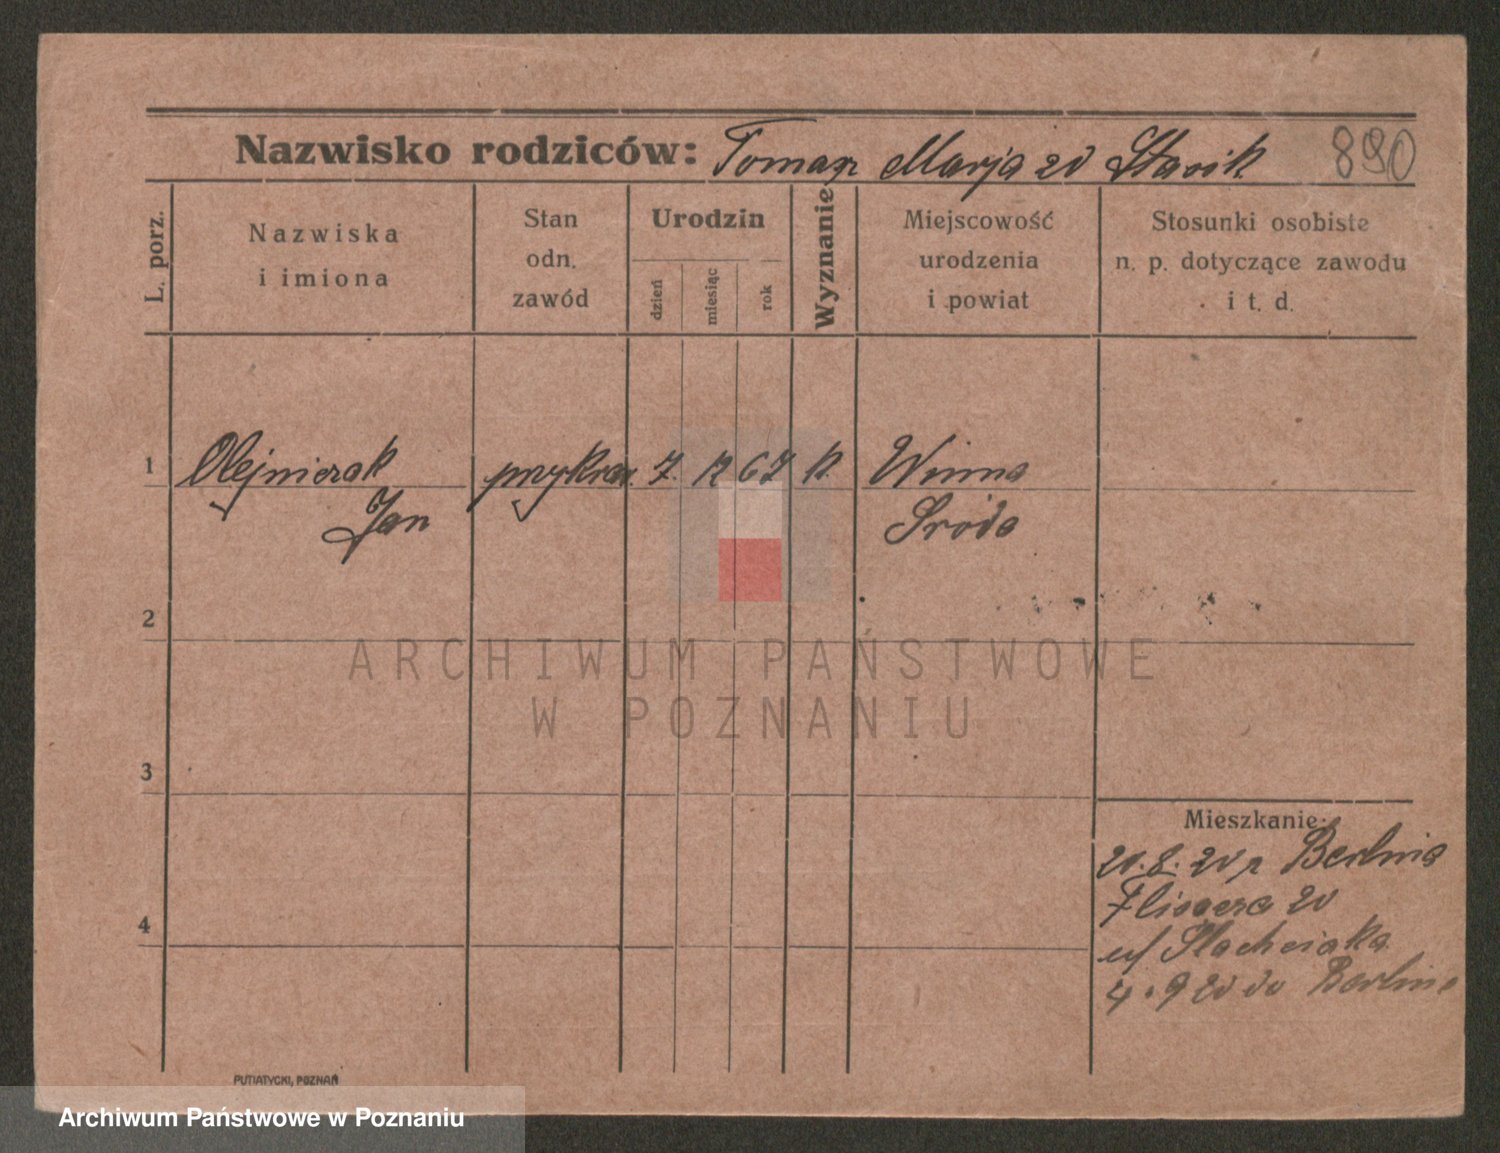 Nazwisko rodziców: Tomasz Marja zd Stasik 890
L. porz.
Nazwiska
i imiona
Stan
odn.
zawód
Urodzin
dzień
miesiąc
rok
Wyznanie
Miejscowość
urodzenia
i powiat
Stosunki osobiste
n. p. dotyczące zawodu
i t. d.
1 Olejniczak 7. 12 67 k. Winna
Jan Sroda
2
ARCHIWUM PAŃSTWOWE
W POZNANIU
3
Mieszkanie:
20.8.20 z Berlina
20
4 u/ Stachciaka
4.9 20 do Berlina
PUTIATYCKI, POZNAŃ
Archiwum Państwowe w Poznaniu